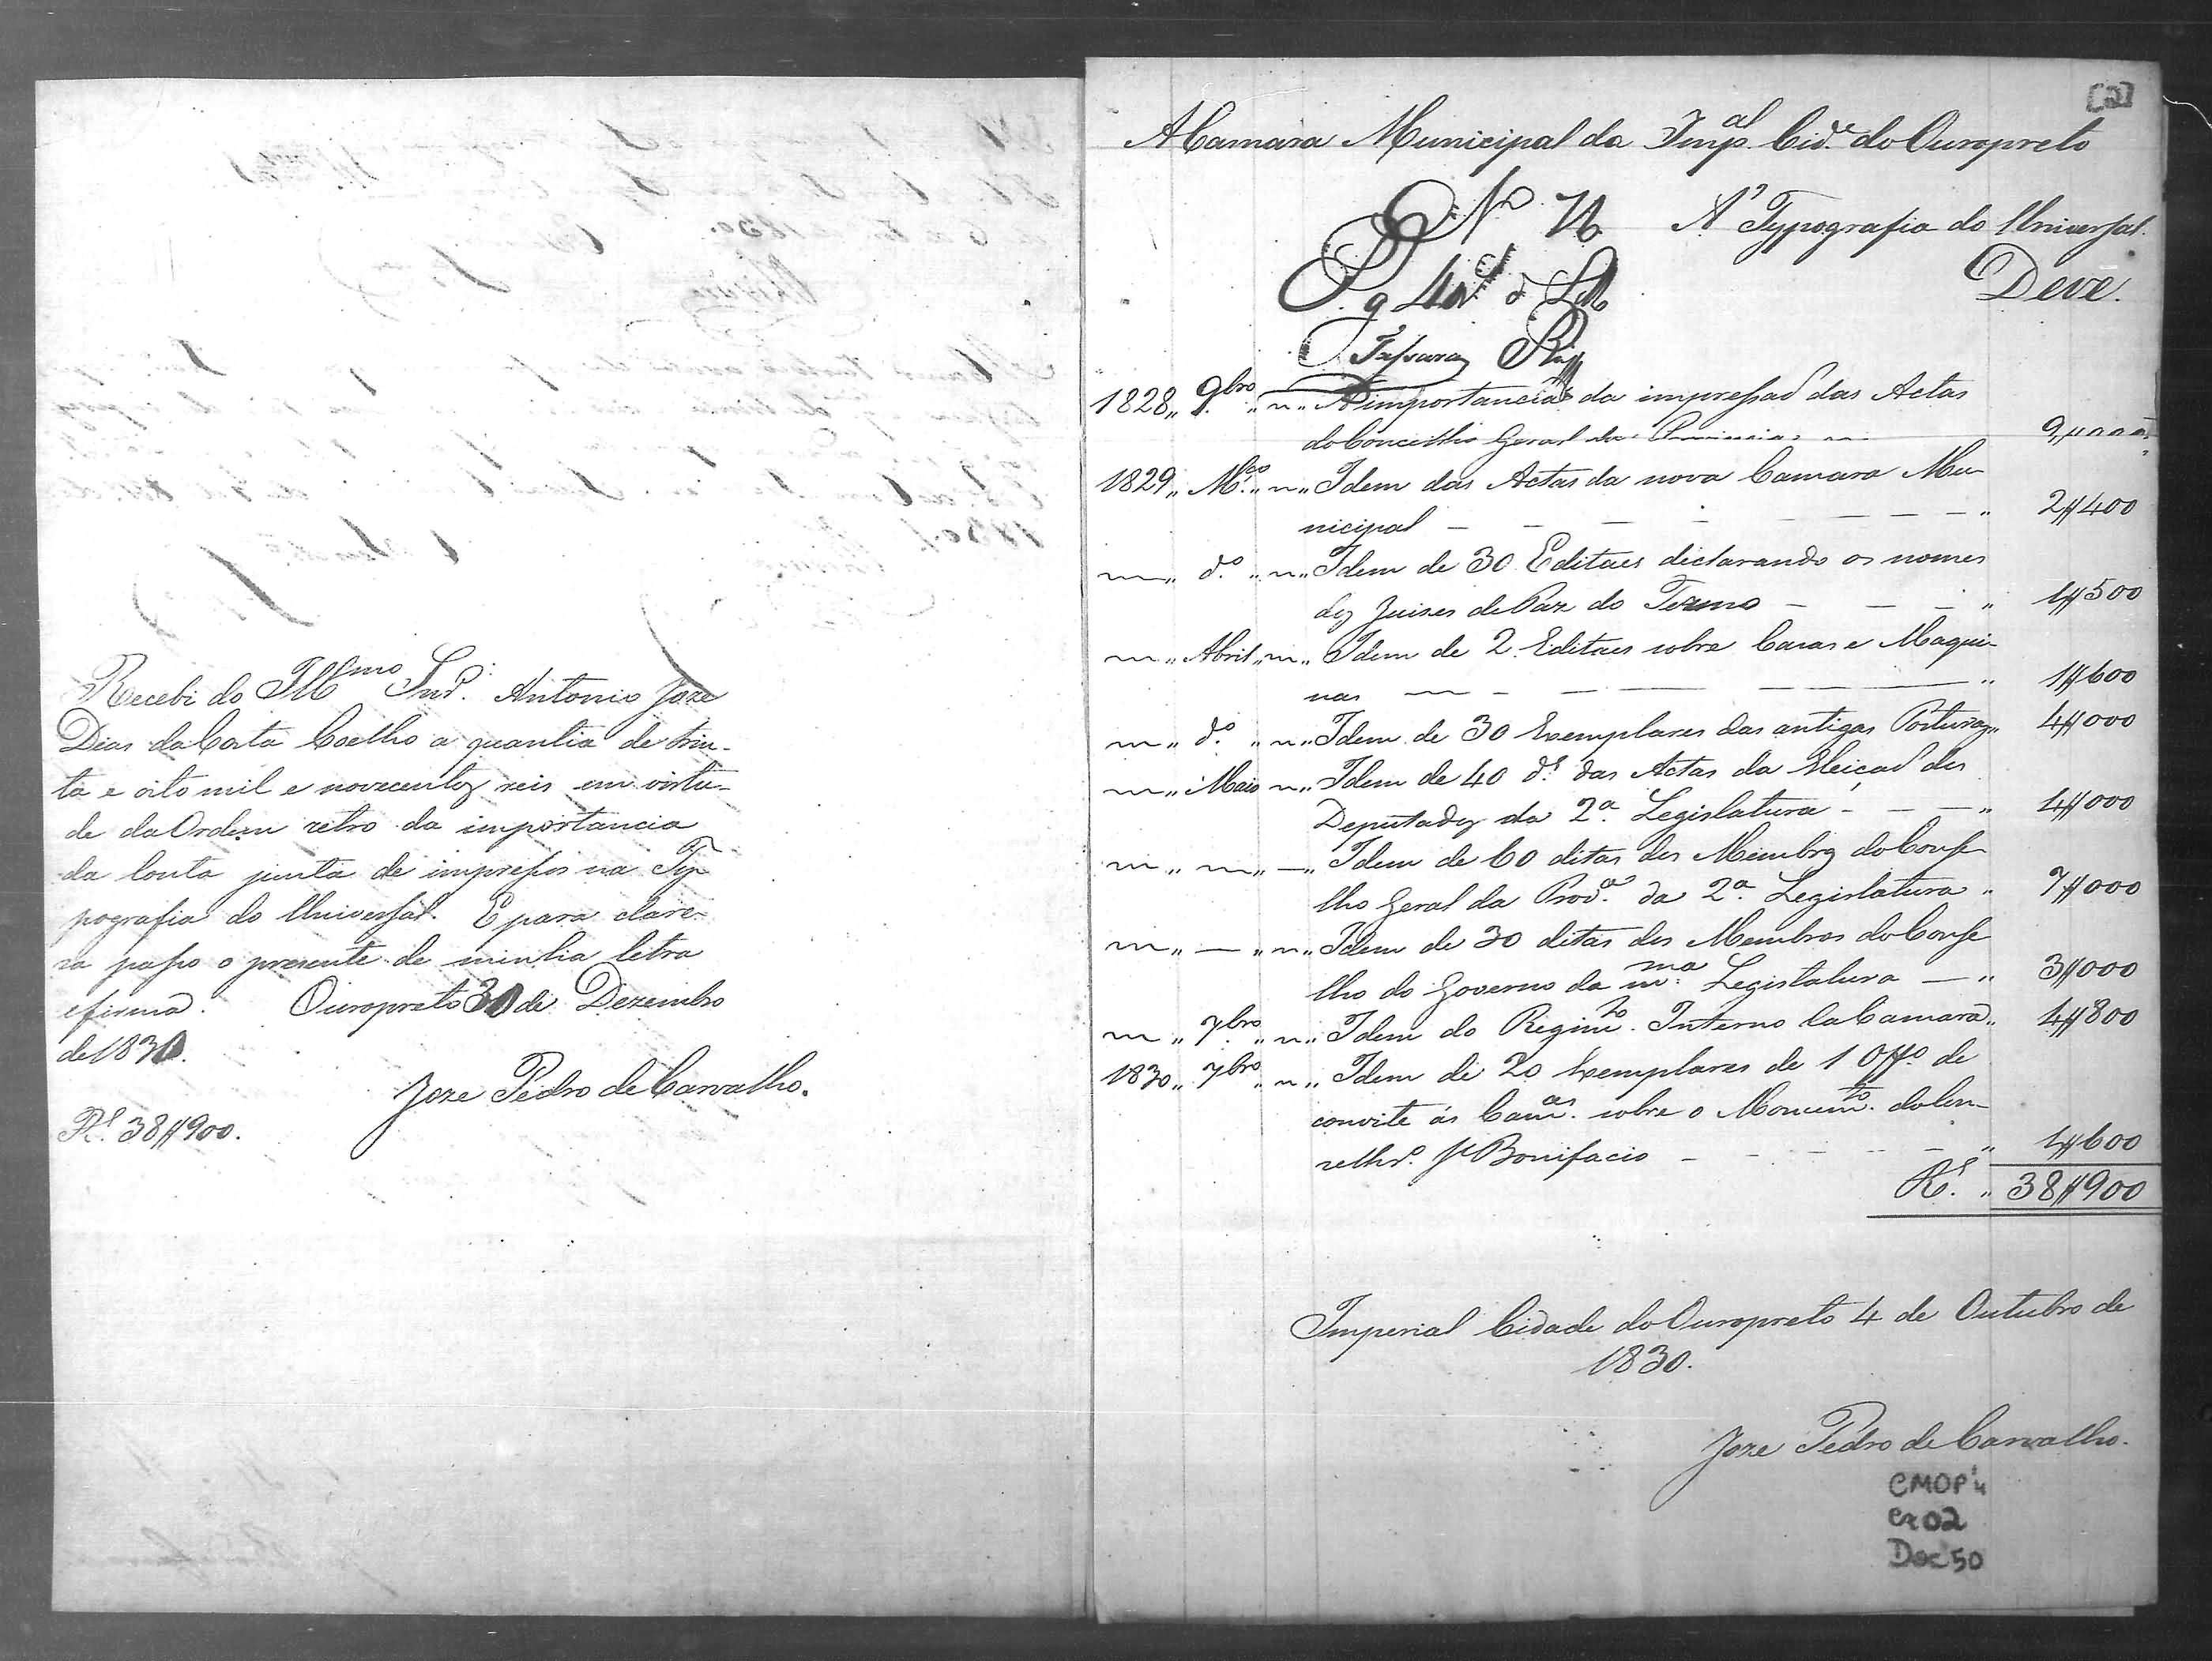 Recebi do Ill.mo Snr. Antonio Joze
Dias da Costa Coelho a quantia de trin-
ta e oito mil e novecentos reis em virtu-
de da Ordem retro da importancia
da Conta junta de impressos na Ty-
pografia do Universal. E para clare-
za passo o presente de minha letra
e firma. Ouropreto 30 de Dezembro
de 1830.
Joze Pedro de Carvalho.
Rs. 38$900.
A Camara Municipal da Imp.al Cid.e do Ouropreto
No.
A' Typografia do Universal.
Deve.
1828,, 9bro. ,, ,, A importancia da impressaõ das Actas
do Concelho Geral da Provincia
1829,, M.ço ,, ,, Idem das Actas da nova Camara Mu-
nicipal - - - - - - - ,, 2$400
,, d.o ,, ,, Idem de 30 Editaes declarando os nomes
dos Juises de Paz do Termo - - - ,, 1$500
,, Abril ,, ,, Idem de 2 Editaes sobre Casas e Maqui-
nas - - - - ,, 1$600
,, d.o ,, ,, Idem de 30 Exemplares das antigas Posturas ,, 4$000
,, Maio ,, Idem de 40 d.s das Actas da Eleiçaõ dos
Deputados da 2.a Legislatura - - - ,, 4$000
,, ,, - ,, Idem de 60 ditas dos Membros do Conse
lho Geral da Prov.a da 2.a Legislatura ,, 7$000
,, - ,, ,, Idem de 30 ditas dos Membros do Conse
lho do Governo da m.ma Legislatura - ,, 3$000
,, 7bro. ,, ,, Idem do Regim.to Interno da Camara ,, 4$800
1830,, 7bro ,, ,, Idem de 20 Exemplares de 1 Off.o de
convite ás Cam.as sobre o Monum.to do Con-
selhr.o J Bonifacio - - - - - ,, 1$600
Rs. ,, 38$900
Imperial Cidade do Ouropreto 4 de Outubro de
1830.
Joze Pedro de Carvalho.
CMOP
Cx02
Doc 50